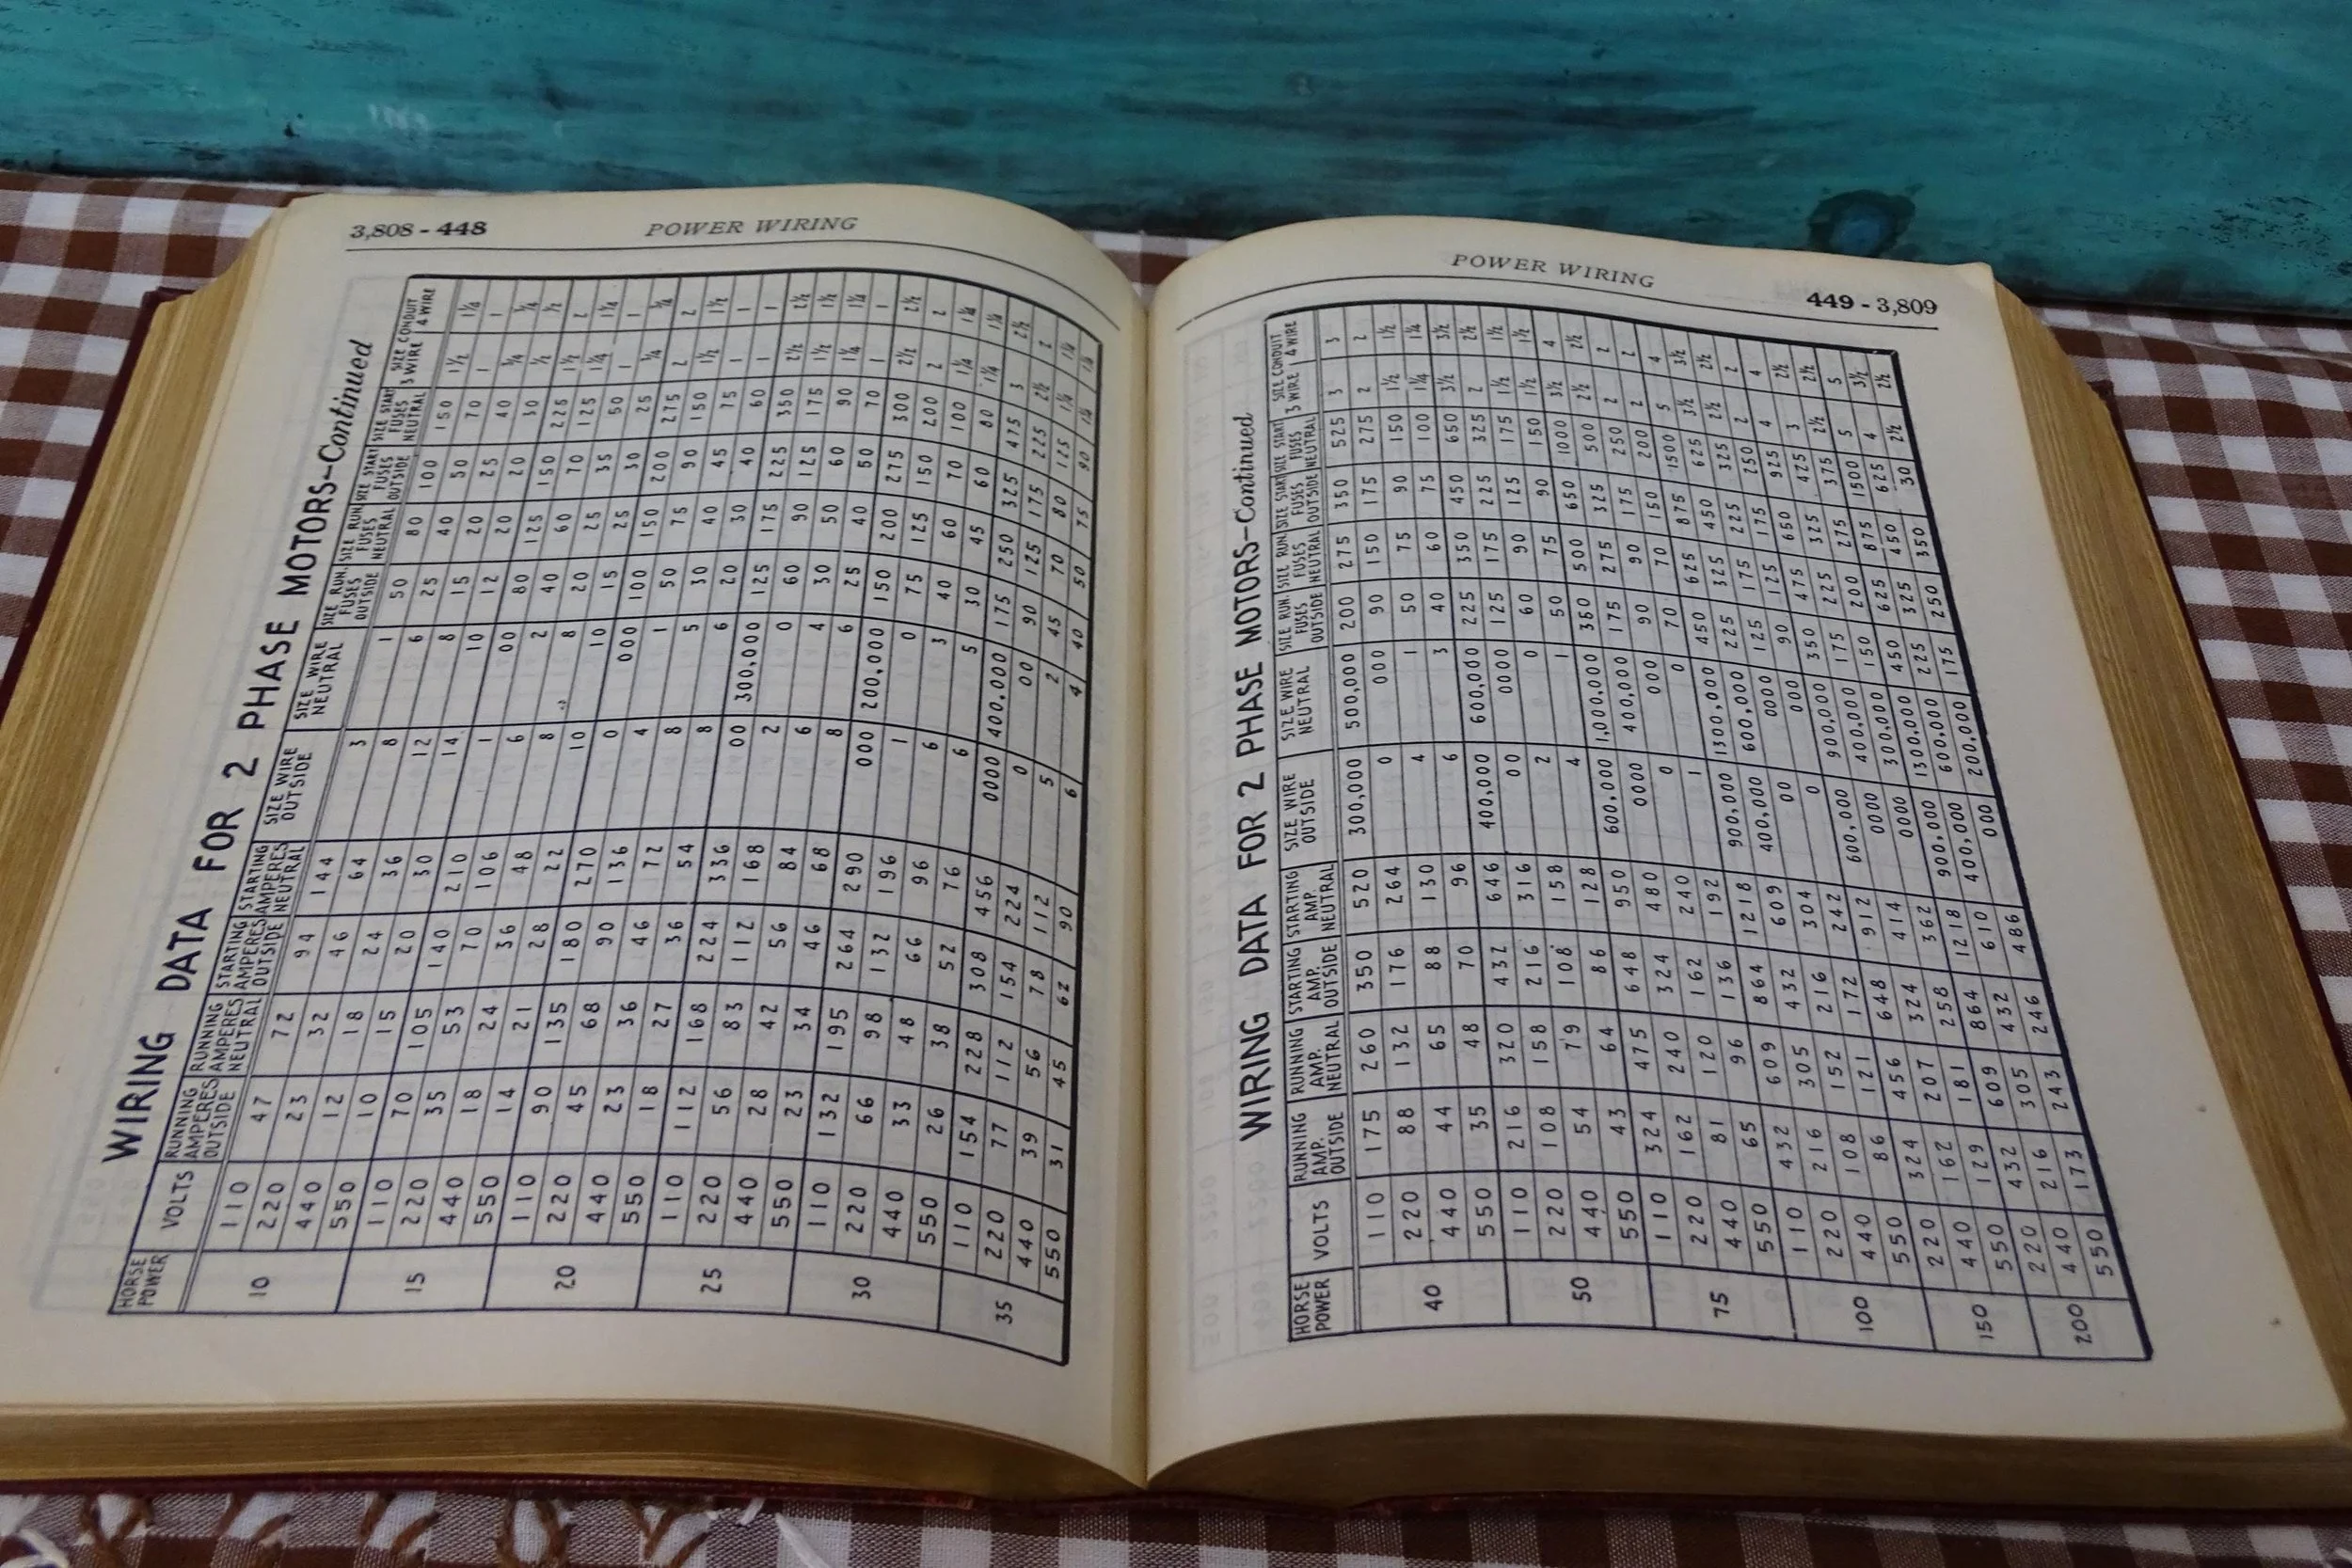 3,808 - 448
POWER WIRING
WIRING DATA FOR 2 PHASE MOTORS—Continued
HORSE POWER VOLTS RUNNING AMPERES OUTSIDE RUNNING AMPERES NEUTRAL STARTING AMPERES OUTSIDE STARTING AMPERES NEUTRAL SIZE WIRE OUTSIDE SIZE WIRE NEUTRAL SIZE RUN. FUSES OUTSIDE SIZE RUN FUSES NEUTRAL SIZE START FUSES OUTSIDE SIZE START FUSES NEUTRAL SIZE CONDUIT 3 WIRE 4 WIRE
10 110 47 72 94 144 3 1 50 80 100 150 1½ 1¼
220 23 32 46 64 8 6 25 40 50 70 1 1
440 12 18 24 36 12 8 15 20 25 40 ¾ ¾
550 10 15 20 30 14 10 12 20 20 30 ½ ½
15 110 70 105 140 210 1 00 80 125 150 225 1½ 2
220 35 53 70 106 6 2 40 60 70 125 1¼ 1¼
440 18 24 36 48 8 8 20 25 35 50 1 1
550 14 21 28 22 10 10 15 25 30 25 ¾ ¾
20 110 90 135 180 270 0 000 100 150 200 275 2 2
220 45 68 90 136 4 1 50 75 90 150 1½ 1½
440 23 36 46 72 8 5 30 40 45 75 1 1
550 18 27 36 54 8 6 20 30 40 60 1 1
25 110 112 168 224 336 00 300,000 125 175 225 350 2½ 2½
220 56 83 112 168 2 0 60 90 125 175 1½ 1½
440 28 42 56 84 6 4 30 50 60 90 1¼ 1¼
550 23 34 46 68 8 6 25 40 50 70 1 1
30 110 132 195 264 290 000 200,000 150 200 275 300 2½ 2½
220 66 98 132 196 1 0 75 125 150 200 2 2
440 33 48 66 96 6 3 40 60 70 100 1¼ 1¼
550 26 38 52 76 6 5 30 45 60 80 1¼ 1¼
35 110 154 228 308 456 0000 400,000 175 250 325 475 3 2½
220 77 112 154 224 0 00 90 125 175 225 2½ 2
440 39 56 78 112 5 2 45 70 80 125
550 31 45 62 90 6 4 40 50 75 90
POWER WIRING
449 - 3,809
WIRING DATA FOR 2 PHASE MOTORS—Continued
HORSE POWER VOLTS RUNNING AMP. OUTSIDE RUNNING AMP. NEUTRAL STARTING AMP. OUTSIDE STARTING AMP. NEUTRAL SIZE WIRE OUTSIDE SIZE WIRE NEUTRAL SIZE RUN. FUSES OUTSIDE SIZE RUN FUSES NEUTRAL SIZE START FUSES OUTSIDE SIZE START FUSES NEUTRAL SIZE CONDUIT 3 WIRE 4 WIRE
40 110 175 260 350 520 300,000 500,000 200 275 350 525 3 3
220 88 132 176 264 0 000 90 150 175 275 2 2
440 44 65 88 130 4 1 50 75 90 150 1½ 1½
550 35 48 70 96 6 3 40 60 75 100 1¼ 1¼
50 110 216 320 432 646 400,000 600,000 225 350 450 650 3½ 3½
220 108 158 216 316 00 0000 125 175 225 325 2 2½
440 54 79 108 158 2 0 60 90 125 175 1½ 1½
550 43 64 86 128 4 1 50 75 90 150 1½ 1½
75 110 324 475 648 950 600,000 1,000,000 360 500 650 1000 3½ 4
220 162 240 324 480 0000 400,000 175 275 325 500 2½ 2½
440 81 120 162 240 0 000 90 90 175 250 2 2
550 65 96 136 192 1 0 70 70 150 200 2 2
100 110 432 609 864 1218 900,000 1300,000 450 625 875 1500 5 4
220 216 305 432 609 400,000 600,000 225 325 450 625 3½ 3½
440 108 152 216 304 00 0000 125 175 225 325 2½ 2½
550 86 121 172 242 0 000 90 125 175 250 2 2
150 220 324 456 648 912 600,000 900,000 350 475 650 925 4 4
440 162 207 324 414 0000 400,000 175 225 325 425 3 2½
550 129 181 258 362 0000 300,000 150 200 275 375 2½ 2½
200 220 432 609 864 1218 900,000 1300,000 450 625 875 1500 5 5
440 216 305 432 610 400,000 600,000 225 325 450 625 4 3½
550 173 243 246 486 000 200,000 175 250 350 30 2½ 2½